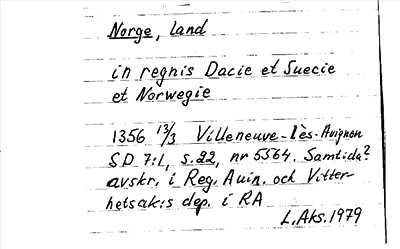 Norge, land
in regnis Dacie et Suecie
et Norwegie
1356 13/3 Villeneuve-lès-Avignon
SD 7:1, s.22, nr 5564. Samtida?
avskr. i Reg. Avin. och Vitter-
hetsak:s dep. i RA
L.Aks.1979